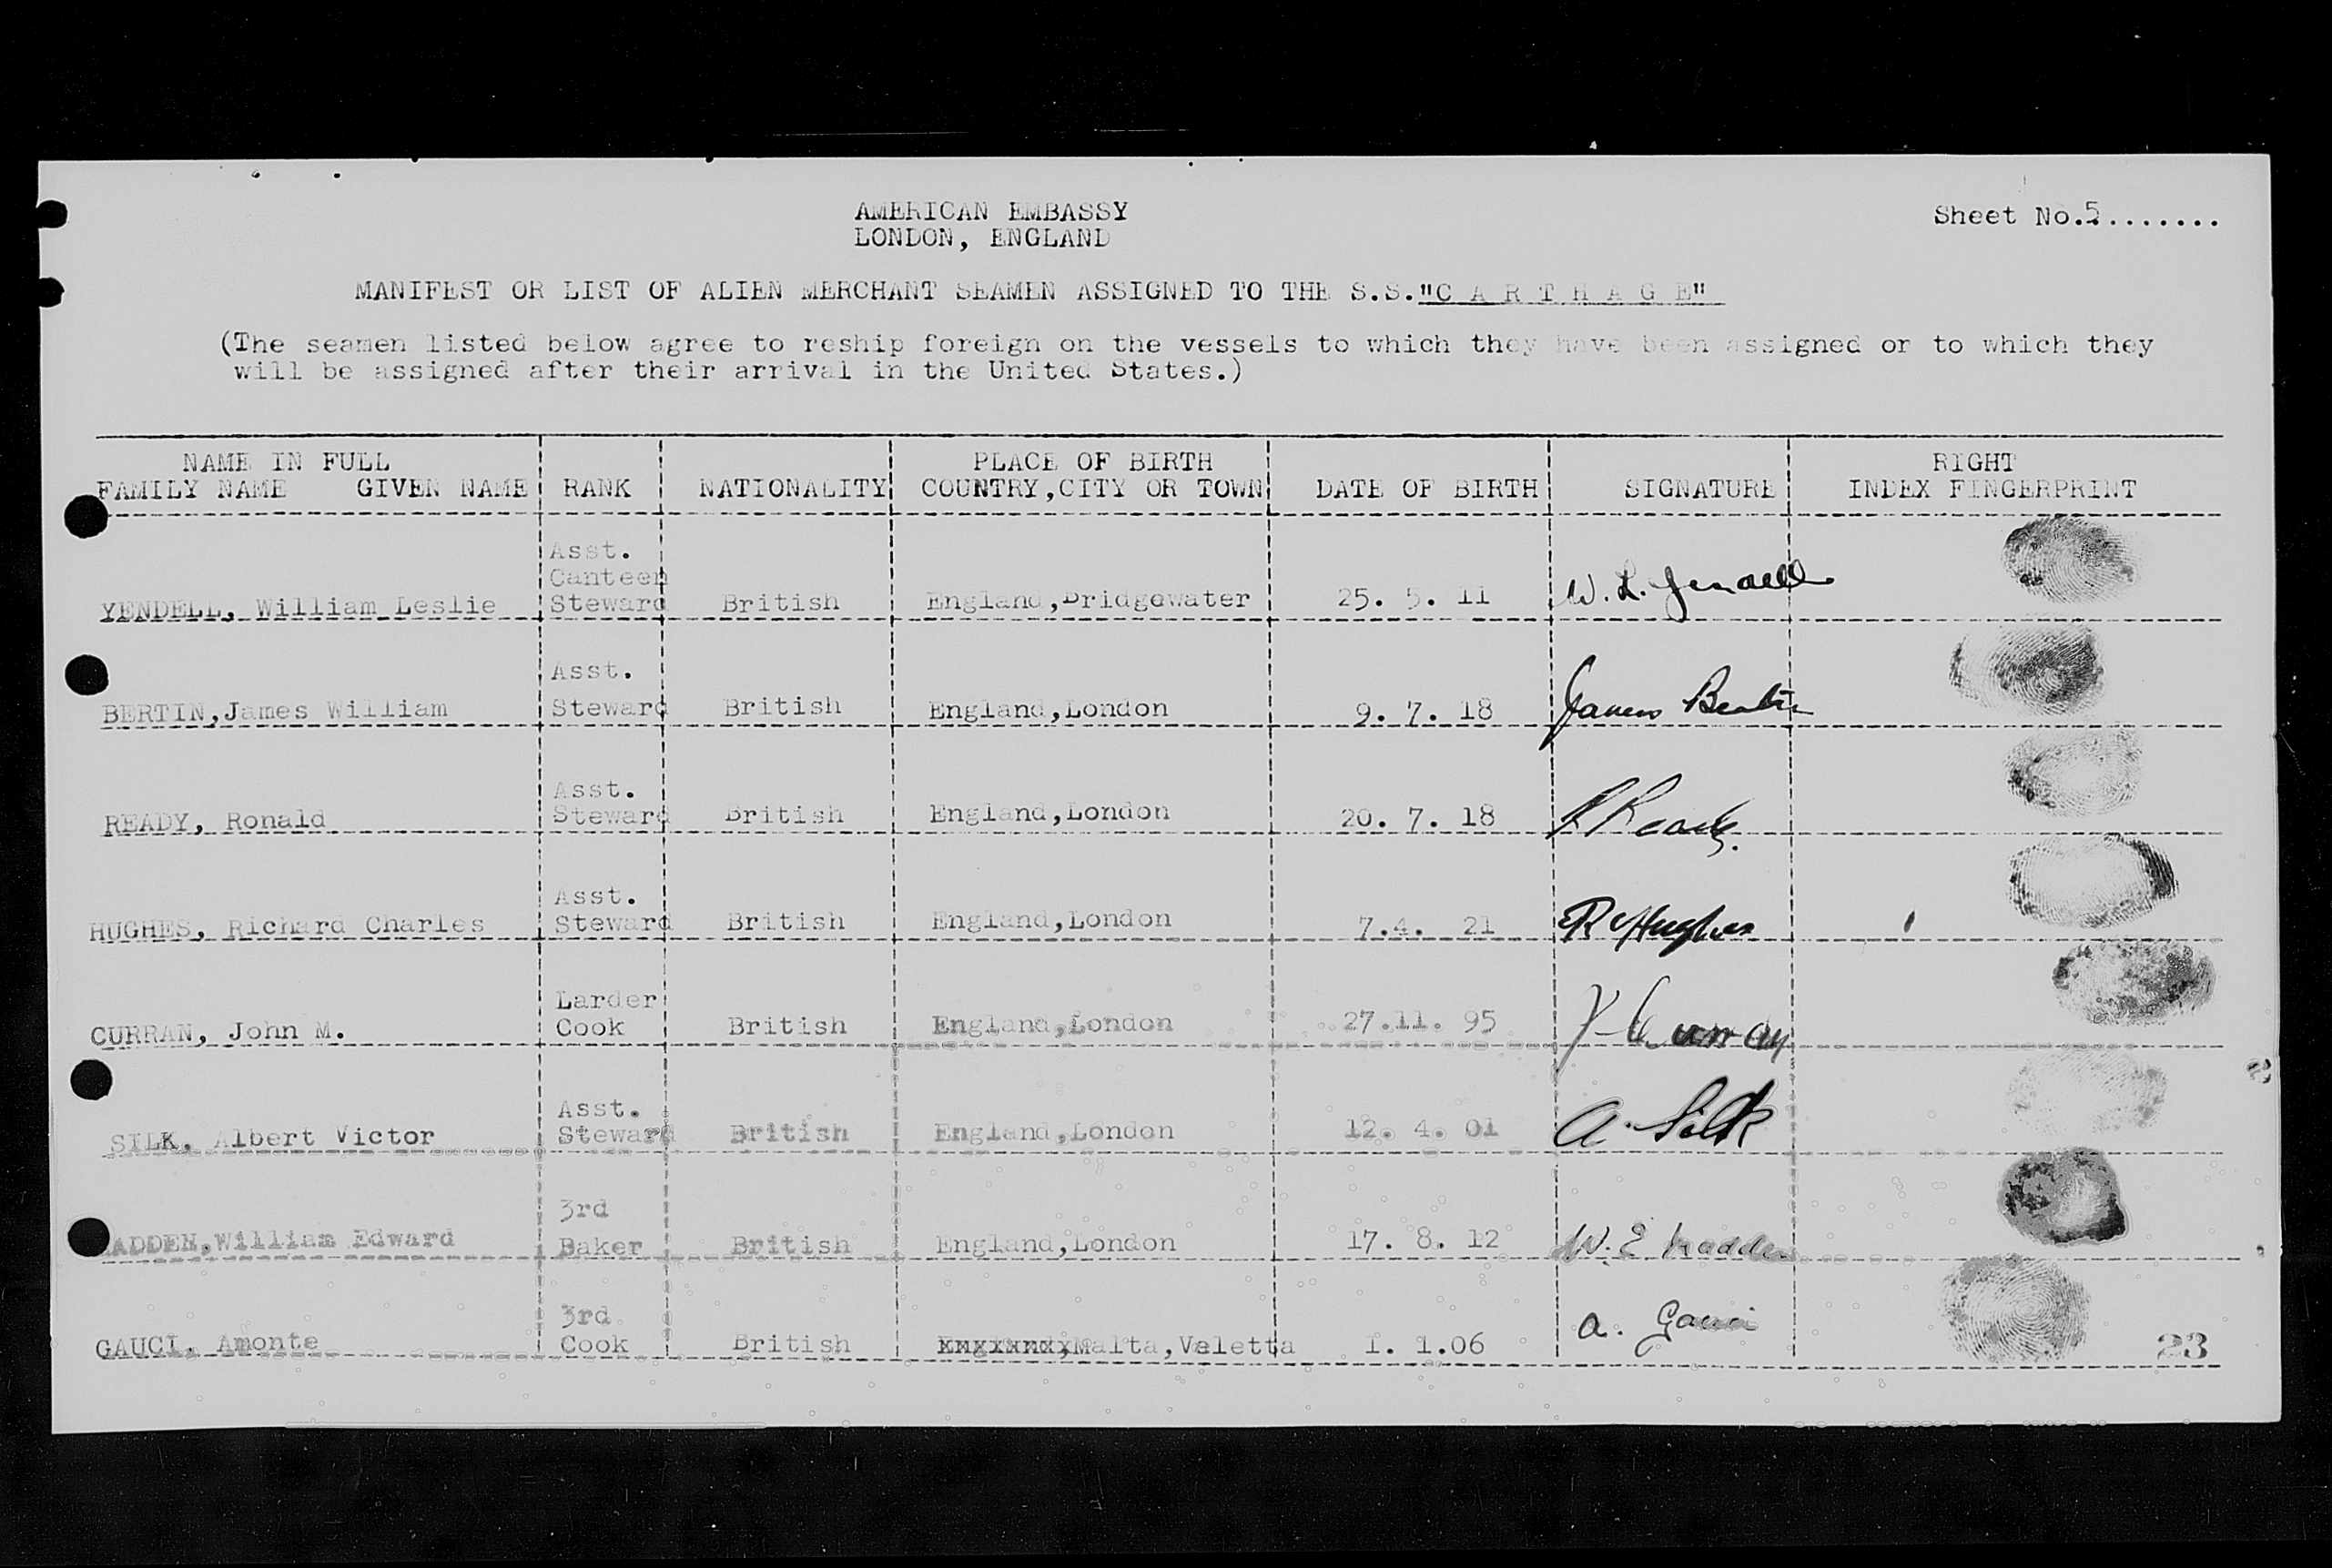 AMERICAN EMBASSY
LONDON, ENGLAND
Sheet No.5.......
MANIFEST OR LIST OF ALIEN MERCHANT SEAMEN ASSIGNED TO THE S.S."C A R T H A G E"
(The seamen listed below agree to reship foreign on the vessels to which they have been assigned or to which they
will be assigned after their arrival in the United States.)
NAME IN FULL PLACE OF BIRTH RIGHT
FAMILY NAME GIVEN NAME RANK NATIONALITY COUNTRY,CITY OR TOWN DATE OF BIRTH SIGNATURE INDEX FINGERPRINT
Asst.
Canteen
YENDELL, William Leslie Steward British England,Bridgewater 25. 5. 11 W. L. Yendell
Asst.
BERTIN,James William Steward British England,London 9. 7. 18 James Bertin
Asst.
READY, Ronald Steward British England,London 20. 7. 18 R Ready.
Asst.
HUGHES, Richard Charles Steward British England,London 7.4. 21 R Hughes
Larder
CURRAN, John M. Cook British England,London 27.11. 95 J Curran
Asst.
SILK, Albert Victor Steward British England,London 12. 4. 01 A. Silk
3rd
ADDEN,William Edward Baker British England,London 17. 8. 12 W. E Madden
3rd
GAUCI, Amonte Cook British Malta,Veletta 1. 1.06 A. Gauci
23